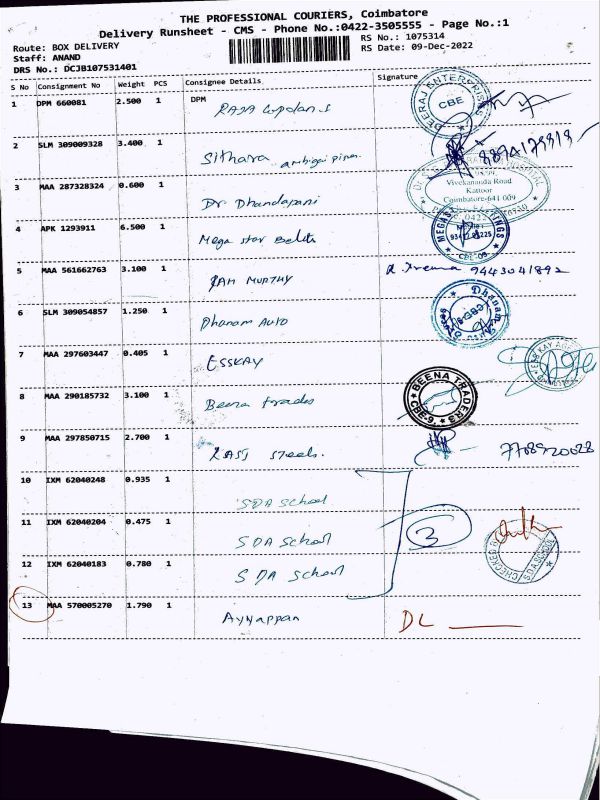 THE PROFESSIONAL COURIERS, Coimbatore
Delivery Runsheet - CMS - Phone No.:0422-3505555 - Page No.:1
Route: BOX DELIVERY
RS No.: 1075314
Staff: ANAND
RS Date: 09-Dec-2022
DRS No.: DCJB107531401
S No Consignment No Weight PCS Consignee Details Signature
1 DPM 660081 2.500 1 DPM
DEERAJ ENTERPRISES
CBE
2 SLM 309009328 3.400 1 Sithara
3 MAA 287328324 0.600 1 Dr. Dhandapani
Vivekananda Road
Kattoor
Coimbatore-641 009
4 APK 1293911 6.500 1 Mega star Belts
5 MAA 561662763 3.100 1 RAM MURTHY 9443041892
6 SLM 309054857 1.250 1 Dhanam Auto
Dhanam
7 MAA 297603447 0.405 1 ESSKAY
8 MAA 290185732 3.100 1 Beena trades
BEENA TRADERS
CBE-9.
9 MAA 297850715 2.700 1 steels. 7708920028
10 IXM 62040248 0.935 1 SDA School
11 IXM 62040204 0.475 1 SDA School
3
12 IXM 62040183 0.780 1 SDA School
CHECKED
S.D.A SCHOOL
13 MAA 570005270 1.790 1 Ayyappan DL